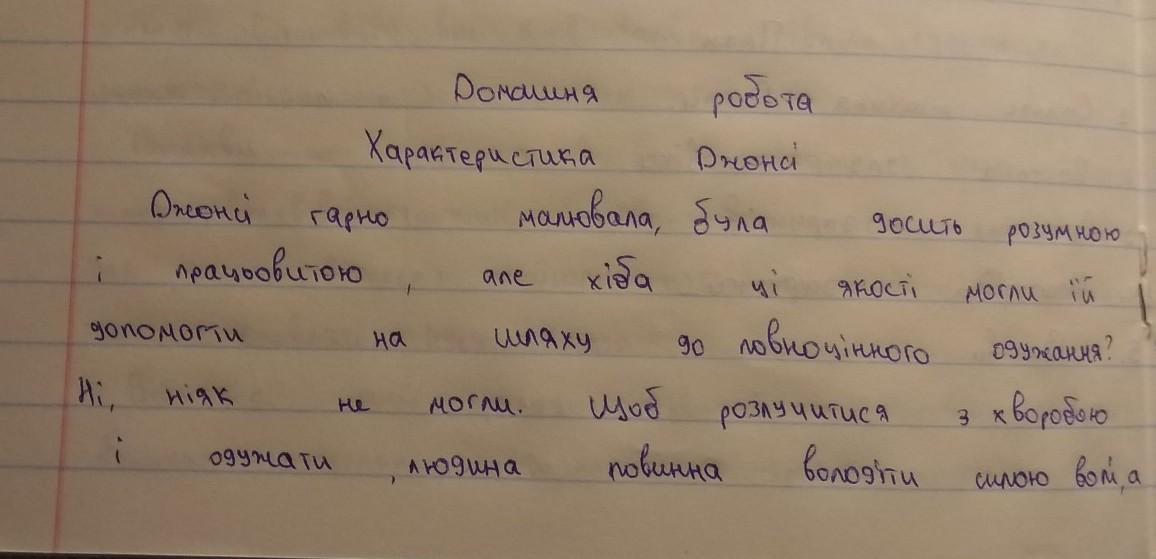 Домашня робота
Характеристика Джонсі
Джонсі гарно малювала, була досить розумною
і працьовитою, але хіба ці якості могли їй
допомогти на шляху до повноцінного одужання?
Ні, ніяк не могли. Щоб розлучитися з хворобою
і одужати, людина повинна володіти силою волі, а